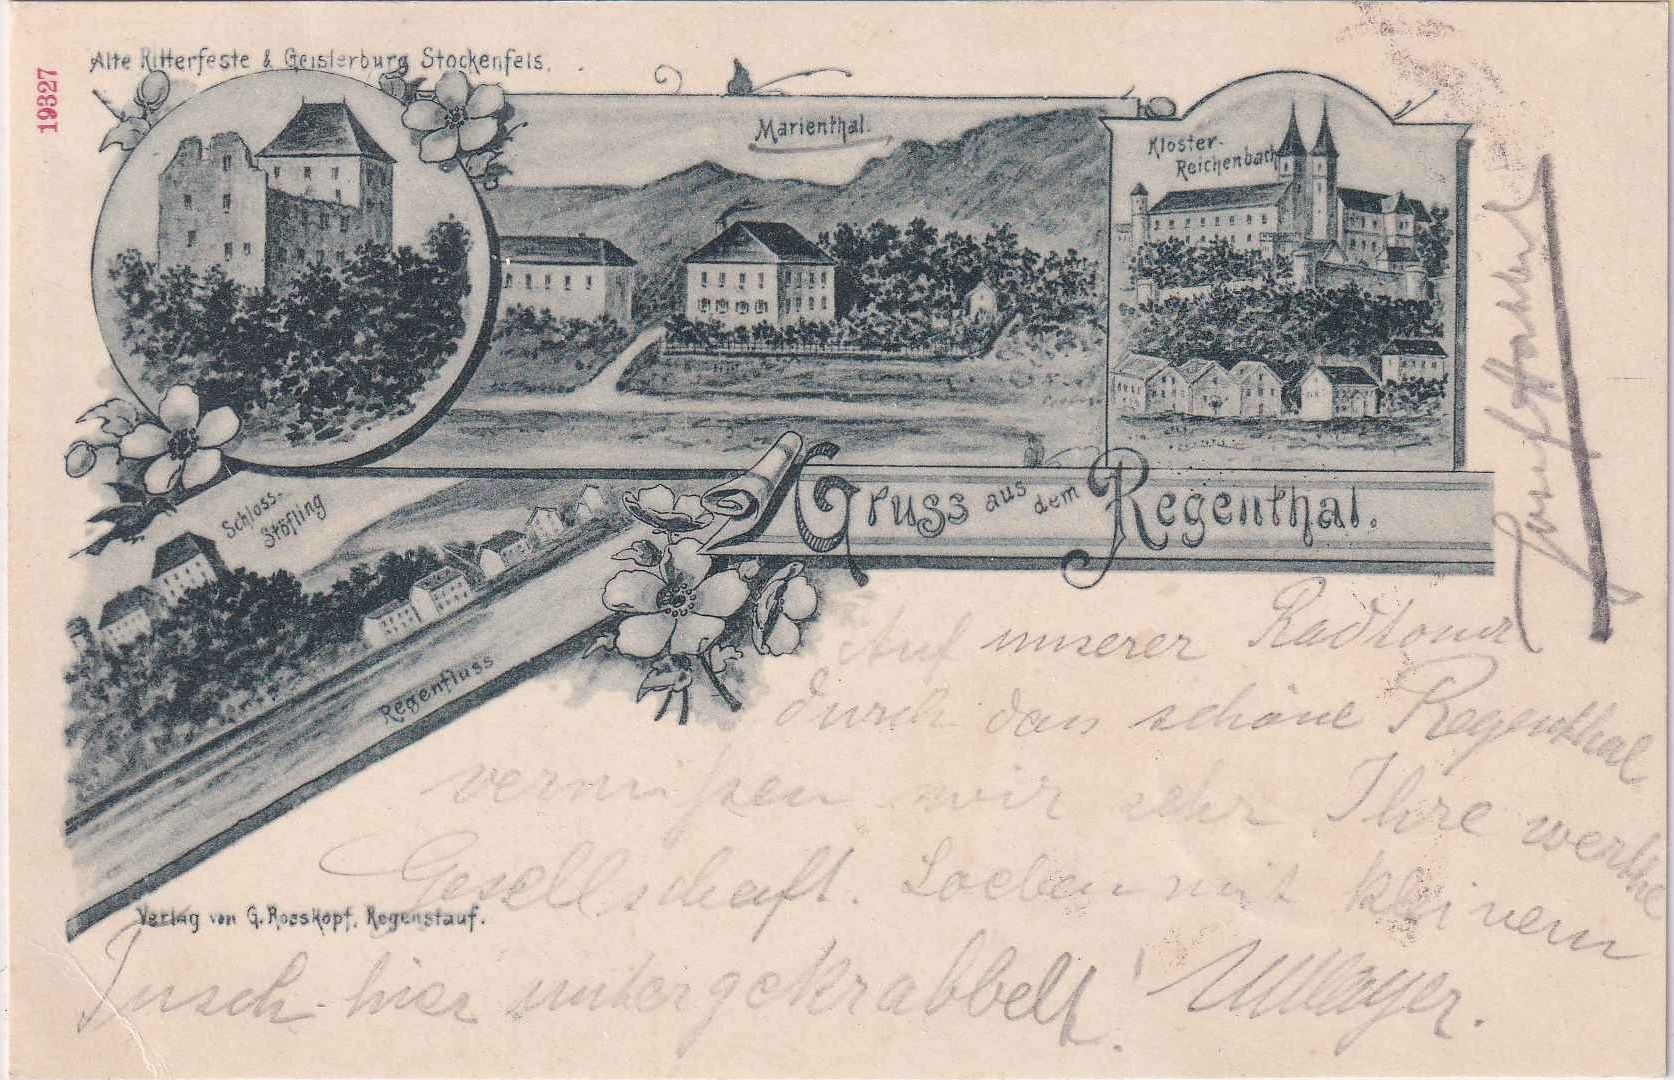 19327
Alte Ritterfeste & Geisterburg Stockenfels.
Marienthal.
Kloster-
Reichenbach
Schloss-
Stöfling
Gruss aus dem Regenthal.
Regenfluss
Auf unserer Radtour
durch das schöne Regenthal
vermißen wir sehr Ihre werthe
Gesellschaft. Soeben mit kleinem
Verlag von G. Rosskopf, Regenstauf.
hier untergekrabbelt!
Josef